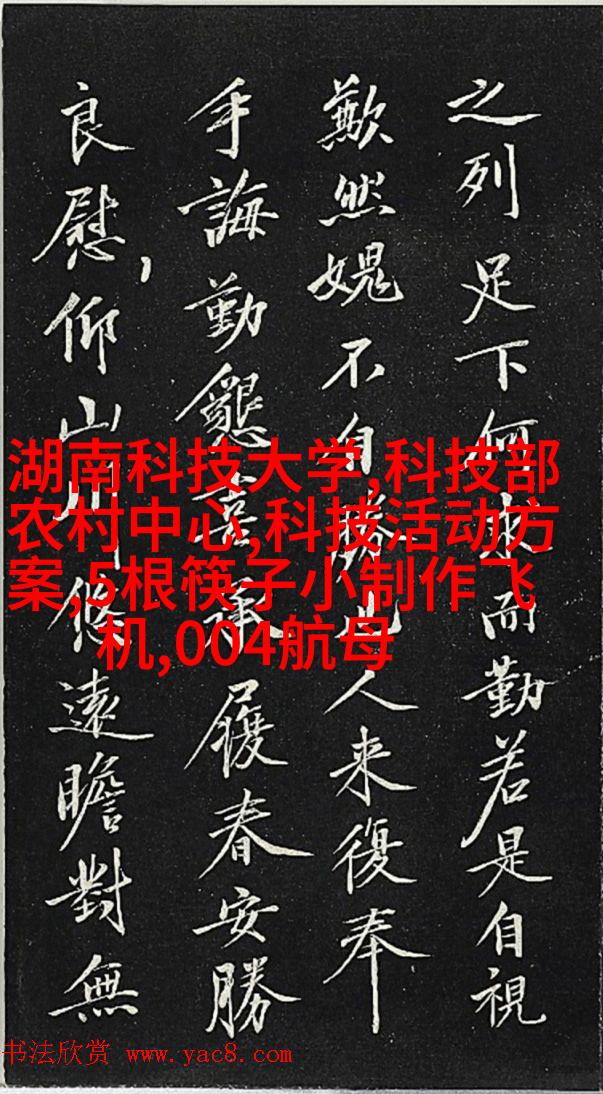 之列足下何求而勤若是自視
歉然媿不自勝此人来復奉
手誨勤懇喜承履春安勝
良慰,仰山川悠遠瞻對無
湖南科技大学,科技部
农村中心,科技活动方
案,5根筷子小制作飞
机,004航母
书法欣赏 www.yac8.com